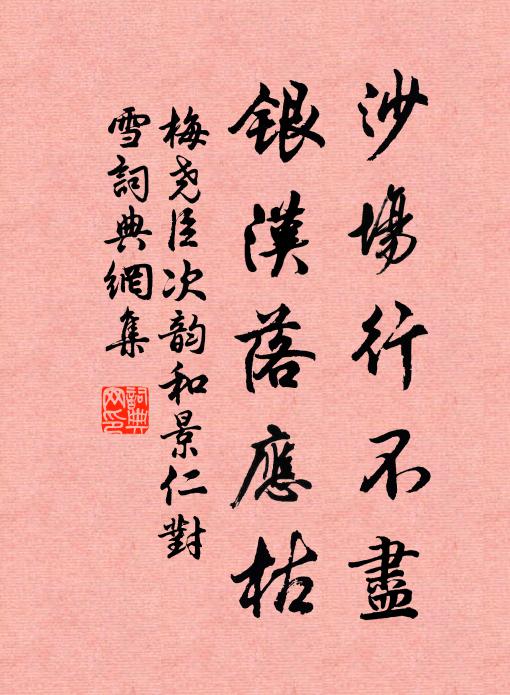 沙場行不盡
銀漢落應枯
梅堯臣次韵和景仁對
雪詞典網集
詞典
网印